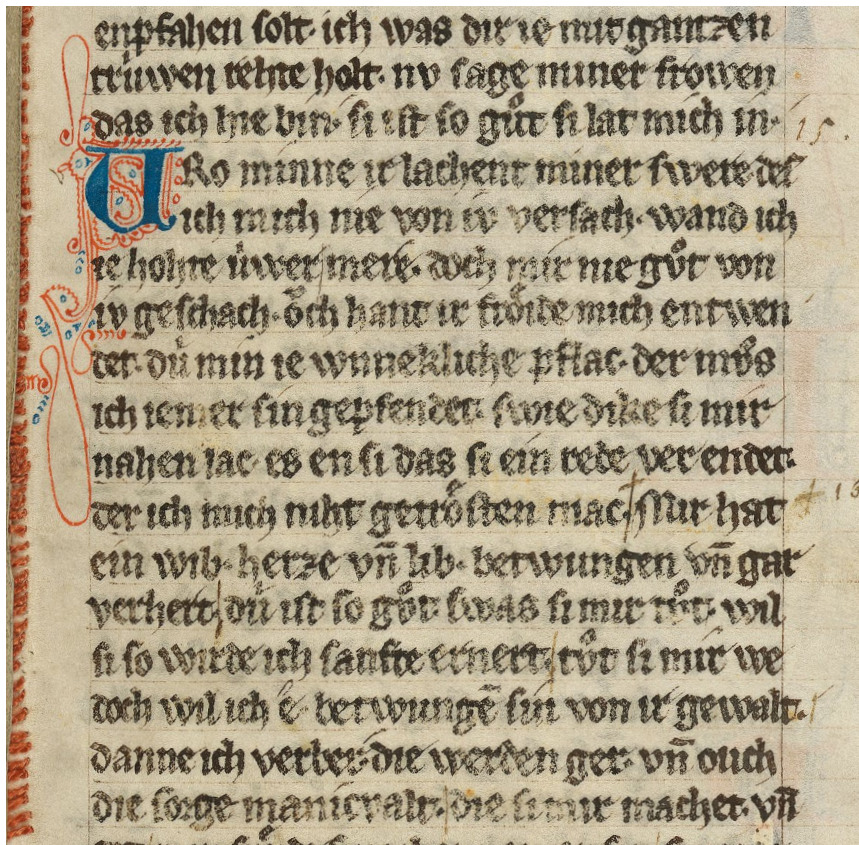 enpfahen solt· ich was dir ie mit gantzen
trüwen rehte holt· nv sage miner frowen
das ich hie bin· si ist so guͦt si lat mich in· 15.
VRo minne ir lachent miner swere des
ich mich nie von iv versach· wand ich
ie horte üwer mere· doch mir nie guͦt von
iv geschach· oͮch hant ir froͤide mich entwen
det· dü min ie wunnekliche pflac· der muͦs
ich iemer sin gepfendet· swie dike si mir
nahen lac· es en si das si ein rede ver endet·
der ich mich niht getroͤsten mac· Mir hat + 13
ein wib· herze vn̄ lib· betwungen vn̄ gar
verhert dü ist so guͦt swas si mir tuͦt· wil
si so wirde ich sanfte ernert· tuͦt si mir we
doch wil ich e· betwungē sin von ir gewalt·
danne ich verber· die werden ger· vn̄ ouch
die sorge manicvalt· die si mir machet· vn̄